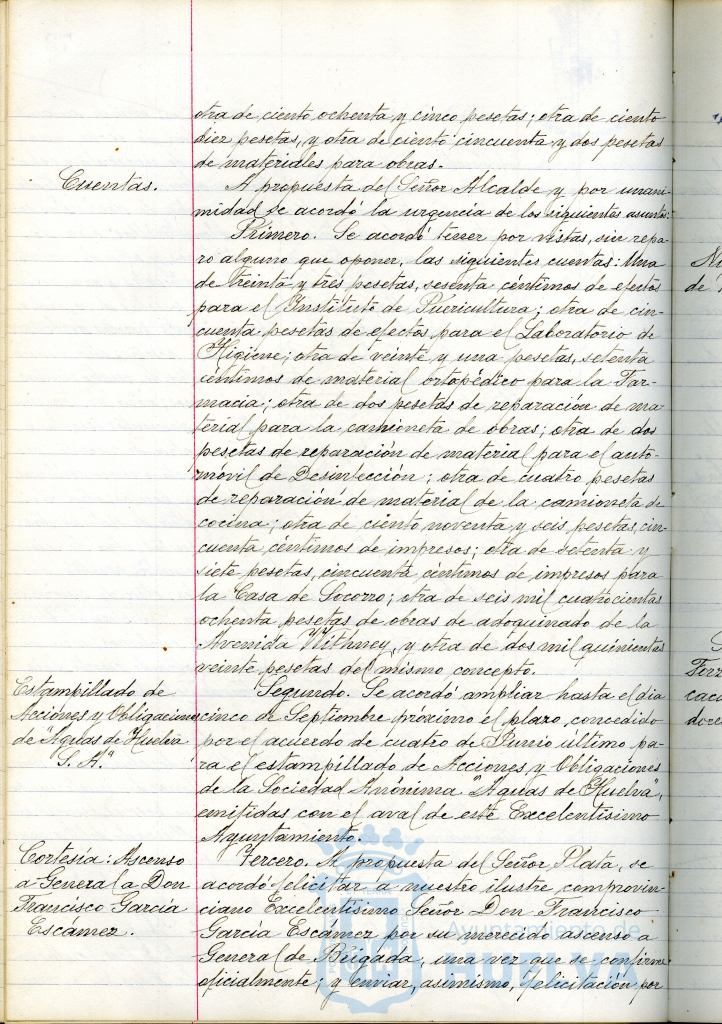 otra de ciento ochenta y cinco pesetas; otra de ciento
diez pesetas, y otra de ciento cincuenta y dos pesetas
de materiales para obras.
Cuentas.
A propuesta del Señor Alcalde y por unani-
midad se acordó la urgencia de los siguientes asuntos:
Primero. Se acordó tener por vistas, sin repa-
ro alguno que oponer, las siguientes cuentas: Una
de treinta y tres pesetas, sesenta céntimos de efectos
para el Instituto de Puericultura; otra de cin-
cuenta pesetas de efectos para el Laboratorio de
Higiene; otra de veinte y una pesetas, setenta
céntimos de material ortopédico para la Far-
macia; otra de dos pesetas de reparación de ma-
terial para la camioneta de obras; otra de dos
pesetas de reparación de material para el auto-
móvil de Desinfección; otra de cuatro pesetas
de reparación de material de la camioneta de
cocina; otra de ciento noventa y seis pesetas, cin-
cuenta céntimos de impresos; otra de setenta y
siete pesetas, cincuenta céntimos de impresos para
la Casa de Socorro; otra de seis mil cuatrocientas
ochenta pesetas de obras de adoquinado de la
Avenida Withney, y otra de dos mil quinientas
veinte pesetas del mismo concepto.
Estampillado de
Acciones y Obligaciones
de "Aguas de Huelva
S. A."
Segundo. Se acordó ampliar hasta el dia
cinco de Septiembre próximo el plazo, concedido
por el acuerdo de cuatro de Junio último pa-
ra el estampillado de Acciones y Obligaciones
de la Sociedad Anónima "Aguas de Huelva",
emitidas con el aval de este Excelentísimo
Ayuntamiento.
Cortesia: Ascenso
a General a Don
Francisco García
Escámez.
Tercero. A propuesta del Señor Plata, se
acordó felicitar a nuestro ilustre comprovin-
ciano Excelentísimo Señor Don Francisco
García Escámez por su merecido ascenso a
General de Brigada, una vez que se confirme
oficialmente; y enviar, asimismo, felicitación por
Ayuntamiento de
HUELVA
de